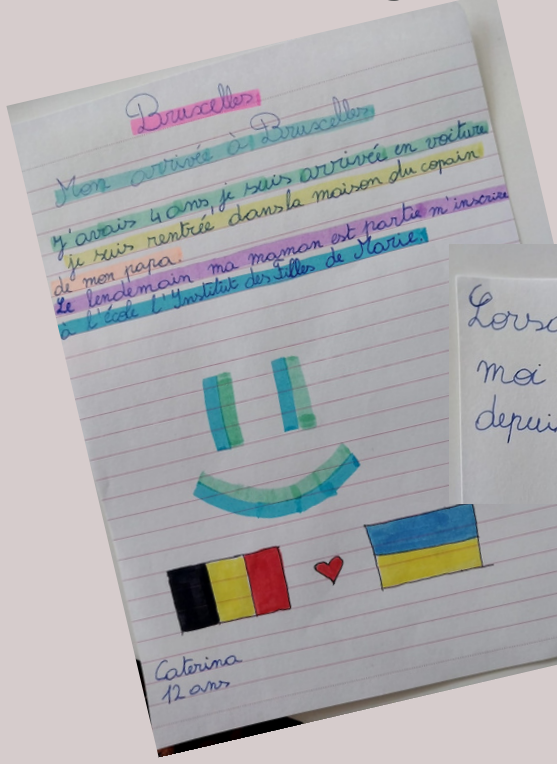 Bruxelles
Mon arrivée à Bruxelles
J'avais 4 ans, je suis arrivée en voiture
je suis rentrée dans la maison du copain
de mon papa
Le lendemain ma maman est partie m'inscrire
à l'école l'Institut des Filles de Marie.
Caterina
12 ans
Lorsq
moi
depuis